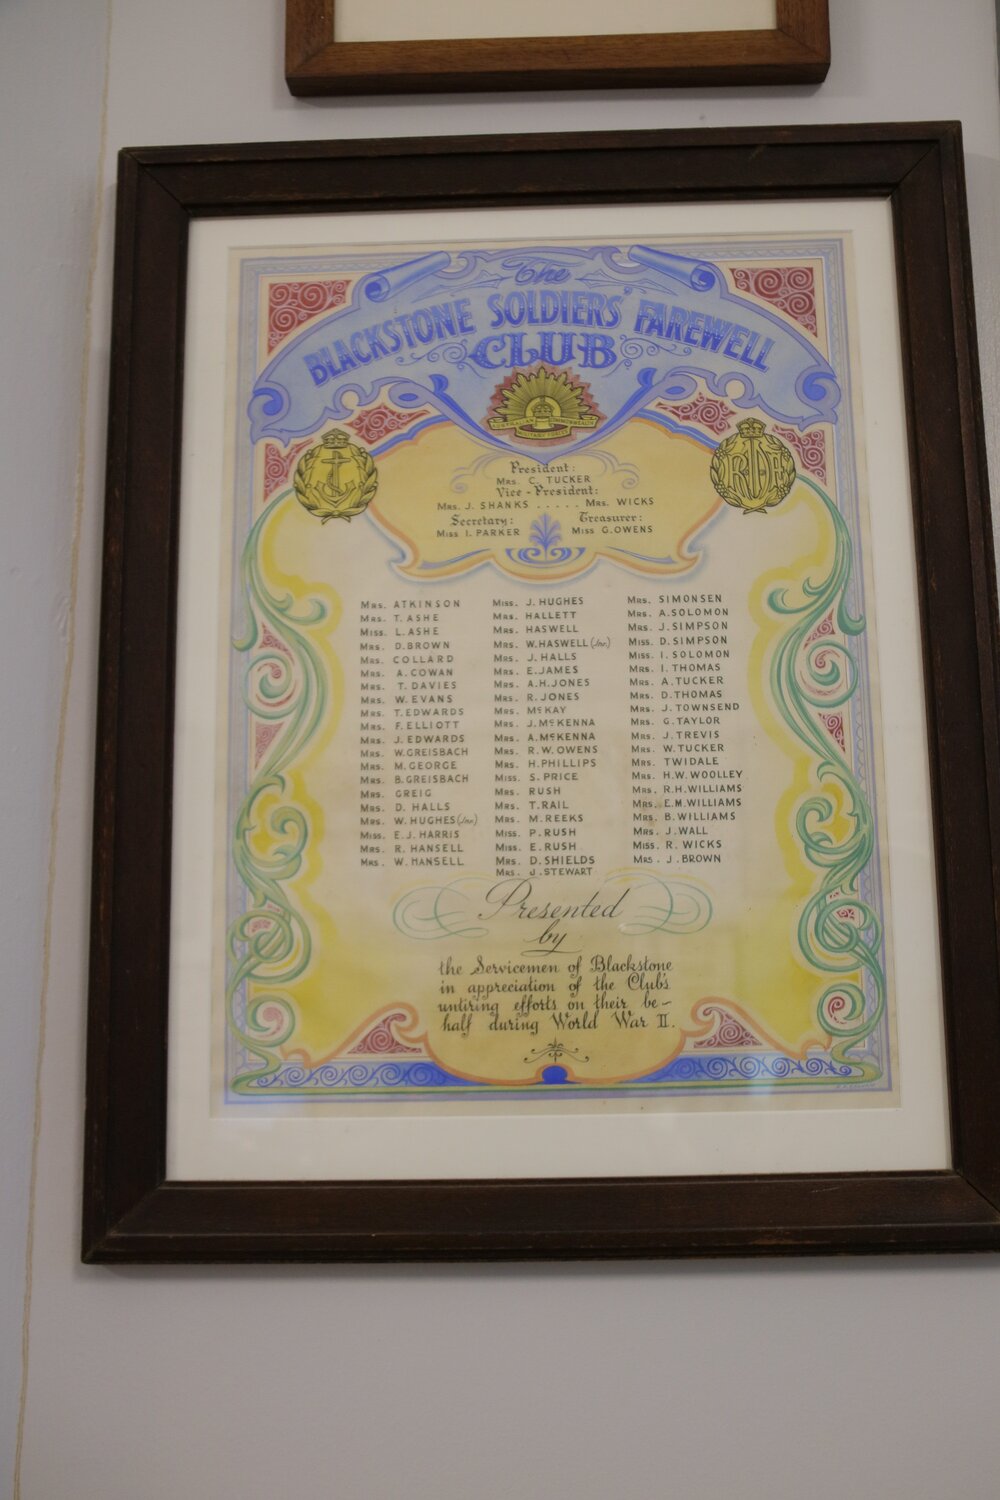 The
BLACKSTONE SOLDIERS' FAREWELL
CLUB
AUSTRALIAN COMMONWEALTH
MILITARY FORCES
President:
MRS. C. TUCKER
Vice-President:
MRS. J. SHANKS ..... MRS. WICKS
Secretary: Treasurer:
MISS I. PARKER MISS G. OWENS
MRS. ATKINSON
MRS. T. ASHE
MISS. L. ASHE
MRS. D. BROWN
MRS. COLLARD
MRS. A. COWAN
MRS. T. DAVIES
MRS. W. EVANS
MRS. T. EDWARDS
MRS. F. ELLIOTT
MRS. J. EDWARDS
MRS. W. GREISBACH
MRS. M. GEORGE
MRS. B. GREISBACH
MRS. GREIG
MRS. D. HALLS
MRS. W. HUGHES (Jnr.)
MISS. E. J. HARRIS
MRS. R. HANSELL
MRS. W. HANSELL
MISS. J. HUGHES
MRS. HALLETT
MRS. HASWELL
MRS. W. HASWELL (Jnr.)
MRS. J. HALLS
MRS. E. JAMES
MRS. A. H. JONES
MRS. R. JONES
MRS. McKAY
MRS. J. McKENNA
MRS. A. McKENNA
MRS. R. W. OWENS
MRS. H. PHILLIPS
MISS. S. PRICE
MRS. RUSH
MRS. T. RAIL
MRS. M. REEKS
MISS. P. RUSH
MISS. E. RUSH
MRS. D. SHIELDS
MRS. J. STEWART
MRS. SIMONSEN
MRS. A. SOLOMON
MRS. J. SIMPSON
MISS. D. SIMPSON
MISS. I. SOLOMON
MRS. I. THOMAS
MRS. A. TUCKER
MRS. D. THOMAS
MRS. J. TOWNSEND
MRS. G. TAYLOR
MRS. J. TREVIS
MRS. W. TUCKER
MRS. TWIDALE
MRS. H. W. WOOLLEY
MRS. R. H. WILLIAMS
MRS. E. M. WILLIAMS
MRS. B. WILLIAMS
MRS. J. WALL
MISS. R. WICKS
MRS. J. BROWN
Presented
by
the Servicemen of Blackstone
in appreciation of the Club's
untiring efforts on their be-
half during World War II.